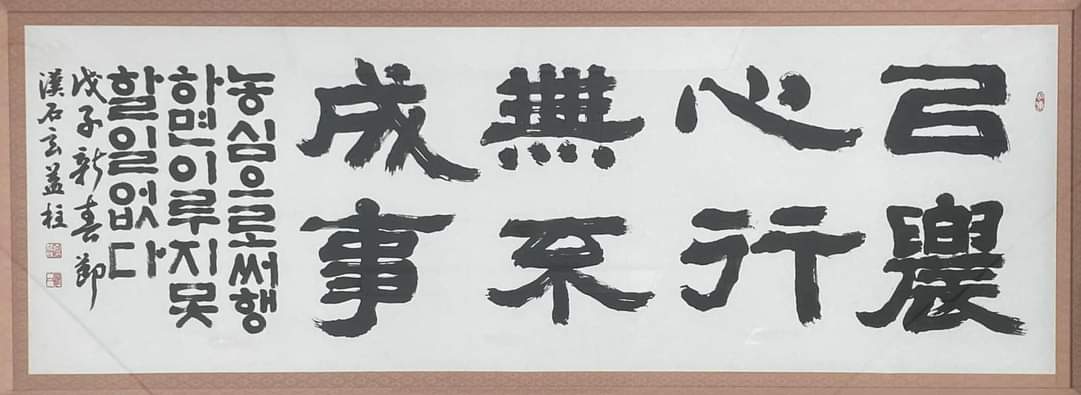 㠯農
心行
無不
成事
농심으로써행
하면이루지못
할일없다
戊子新春節
漢石玄益柱